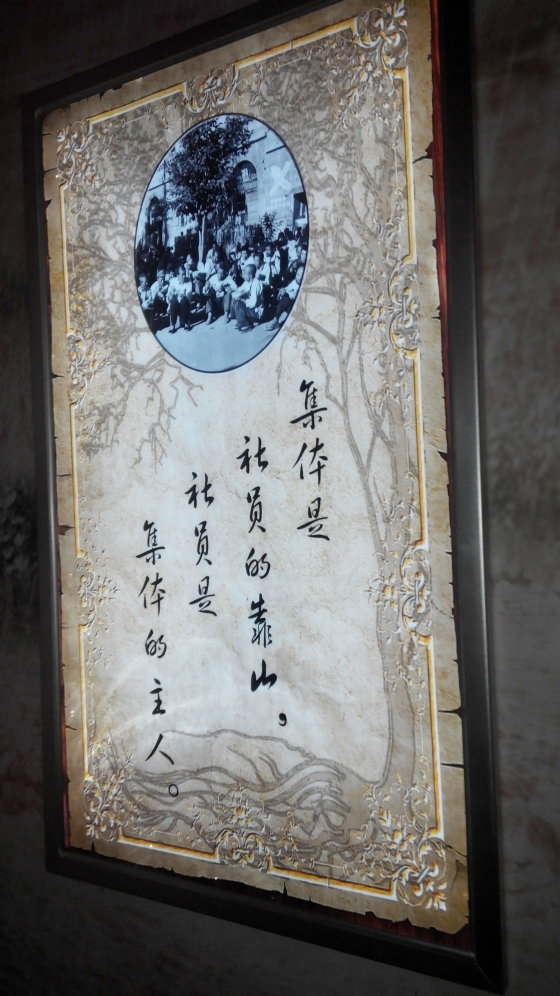 集体是
社员的靠山，
社员是
集体的主人。